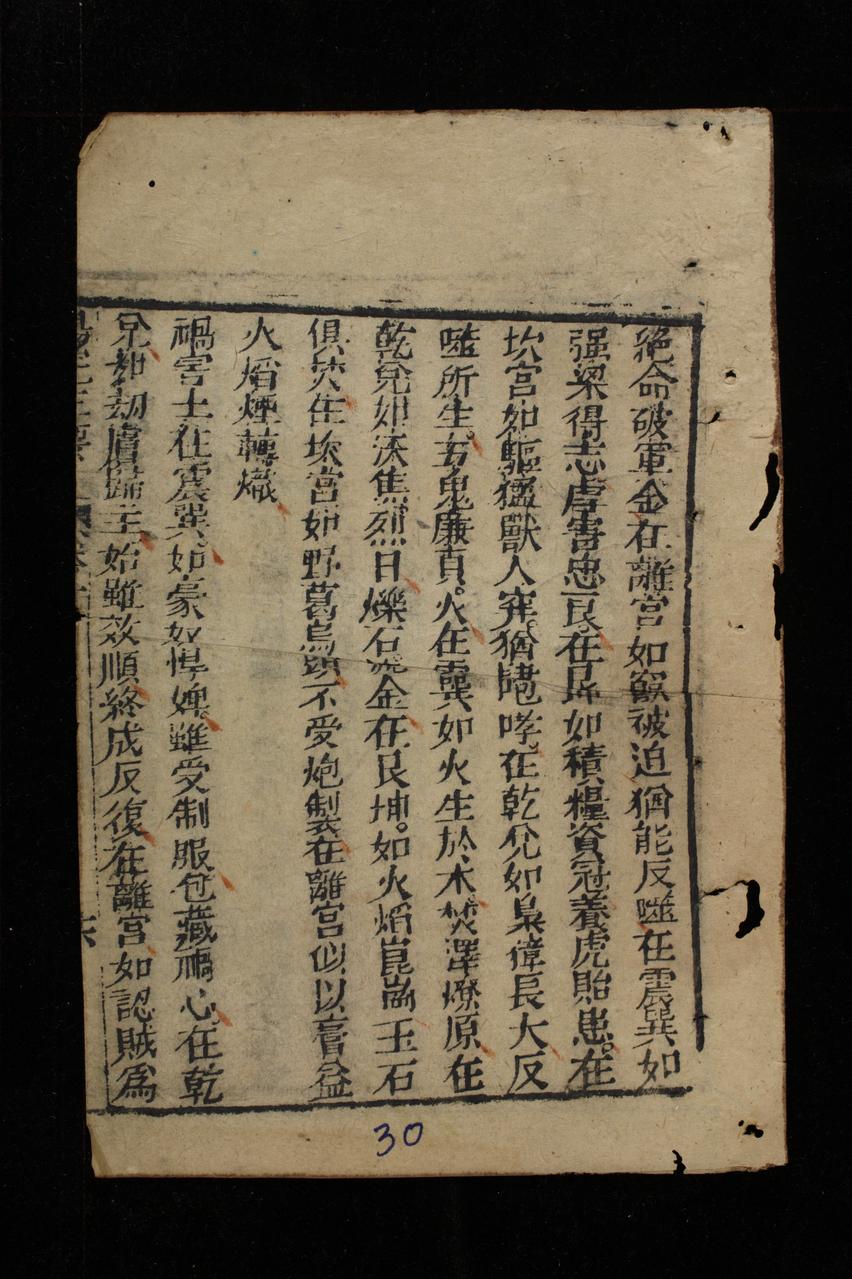 絕命破軍金在離宮如竄被迫猶能反噬在震巽如
强梁得志虐害忠良在艮坤如積糧資寇養虎貽患。在
坎宮如驅猛獸入穽。猶聽咆哮。在乾兌如梟獍長大反
噬所生。五鬼廉貞。火在震巽如火生於木。焚澤燎原。在
乾兌如沃焦。烈日爍石流金。在艮坤。如火焰崑崗玉石
俱焚。在坎宮如野葛烏頭不受炮製。在離宮似以膏益
火焰煙轉熾
禍害土在震巽。如豪奴悍婢。雖受制服包藏禍心。在乾
兌如劫虜歸主。始雖效順終成反復。在離宮如認賊爲
六
30